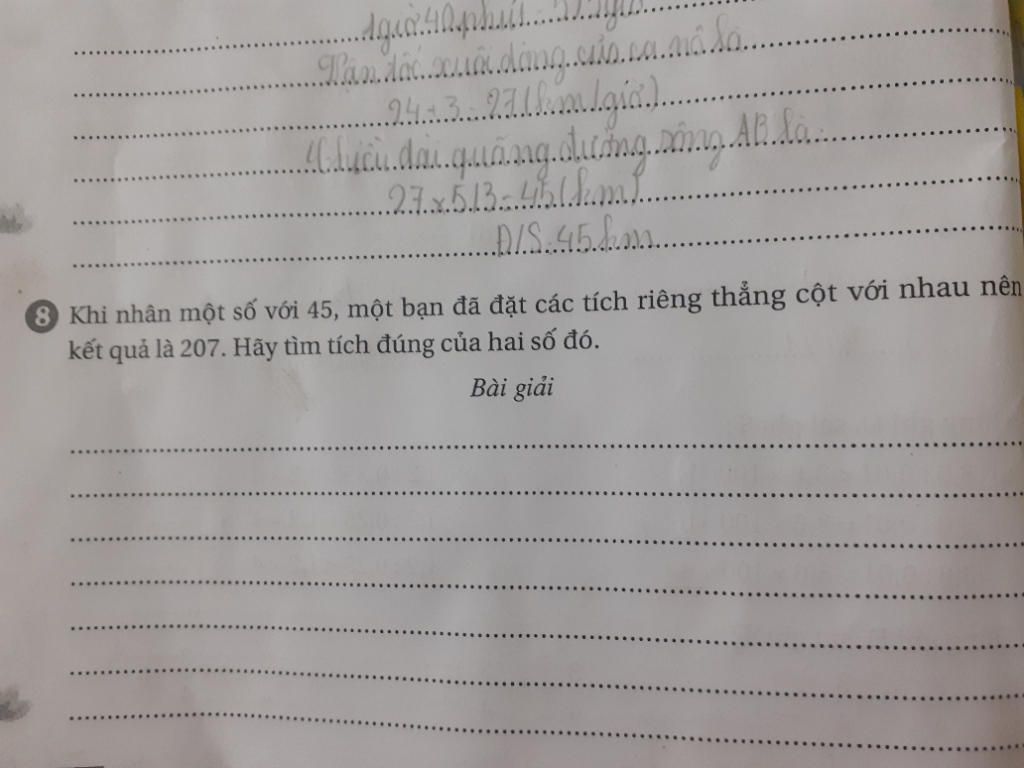 1 giờ 40 phút =
Vận tốc xuôi dòng của ca nô là
24 + 3 = 27 (km/giờ)
Chiều dài quãng đường sông AB là:
27 x 5/3 = 45 (km)
Đ/S: 45 km
8 Khi nhân một số với 45, một bạn đã đặt các tích riêng thẳng cột với nhau nên
kết quả là 207. Hãy tìm tích đúng của hai số đó.
Bài giải